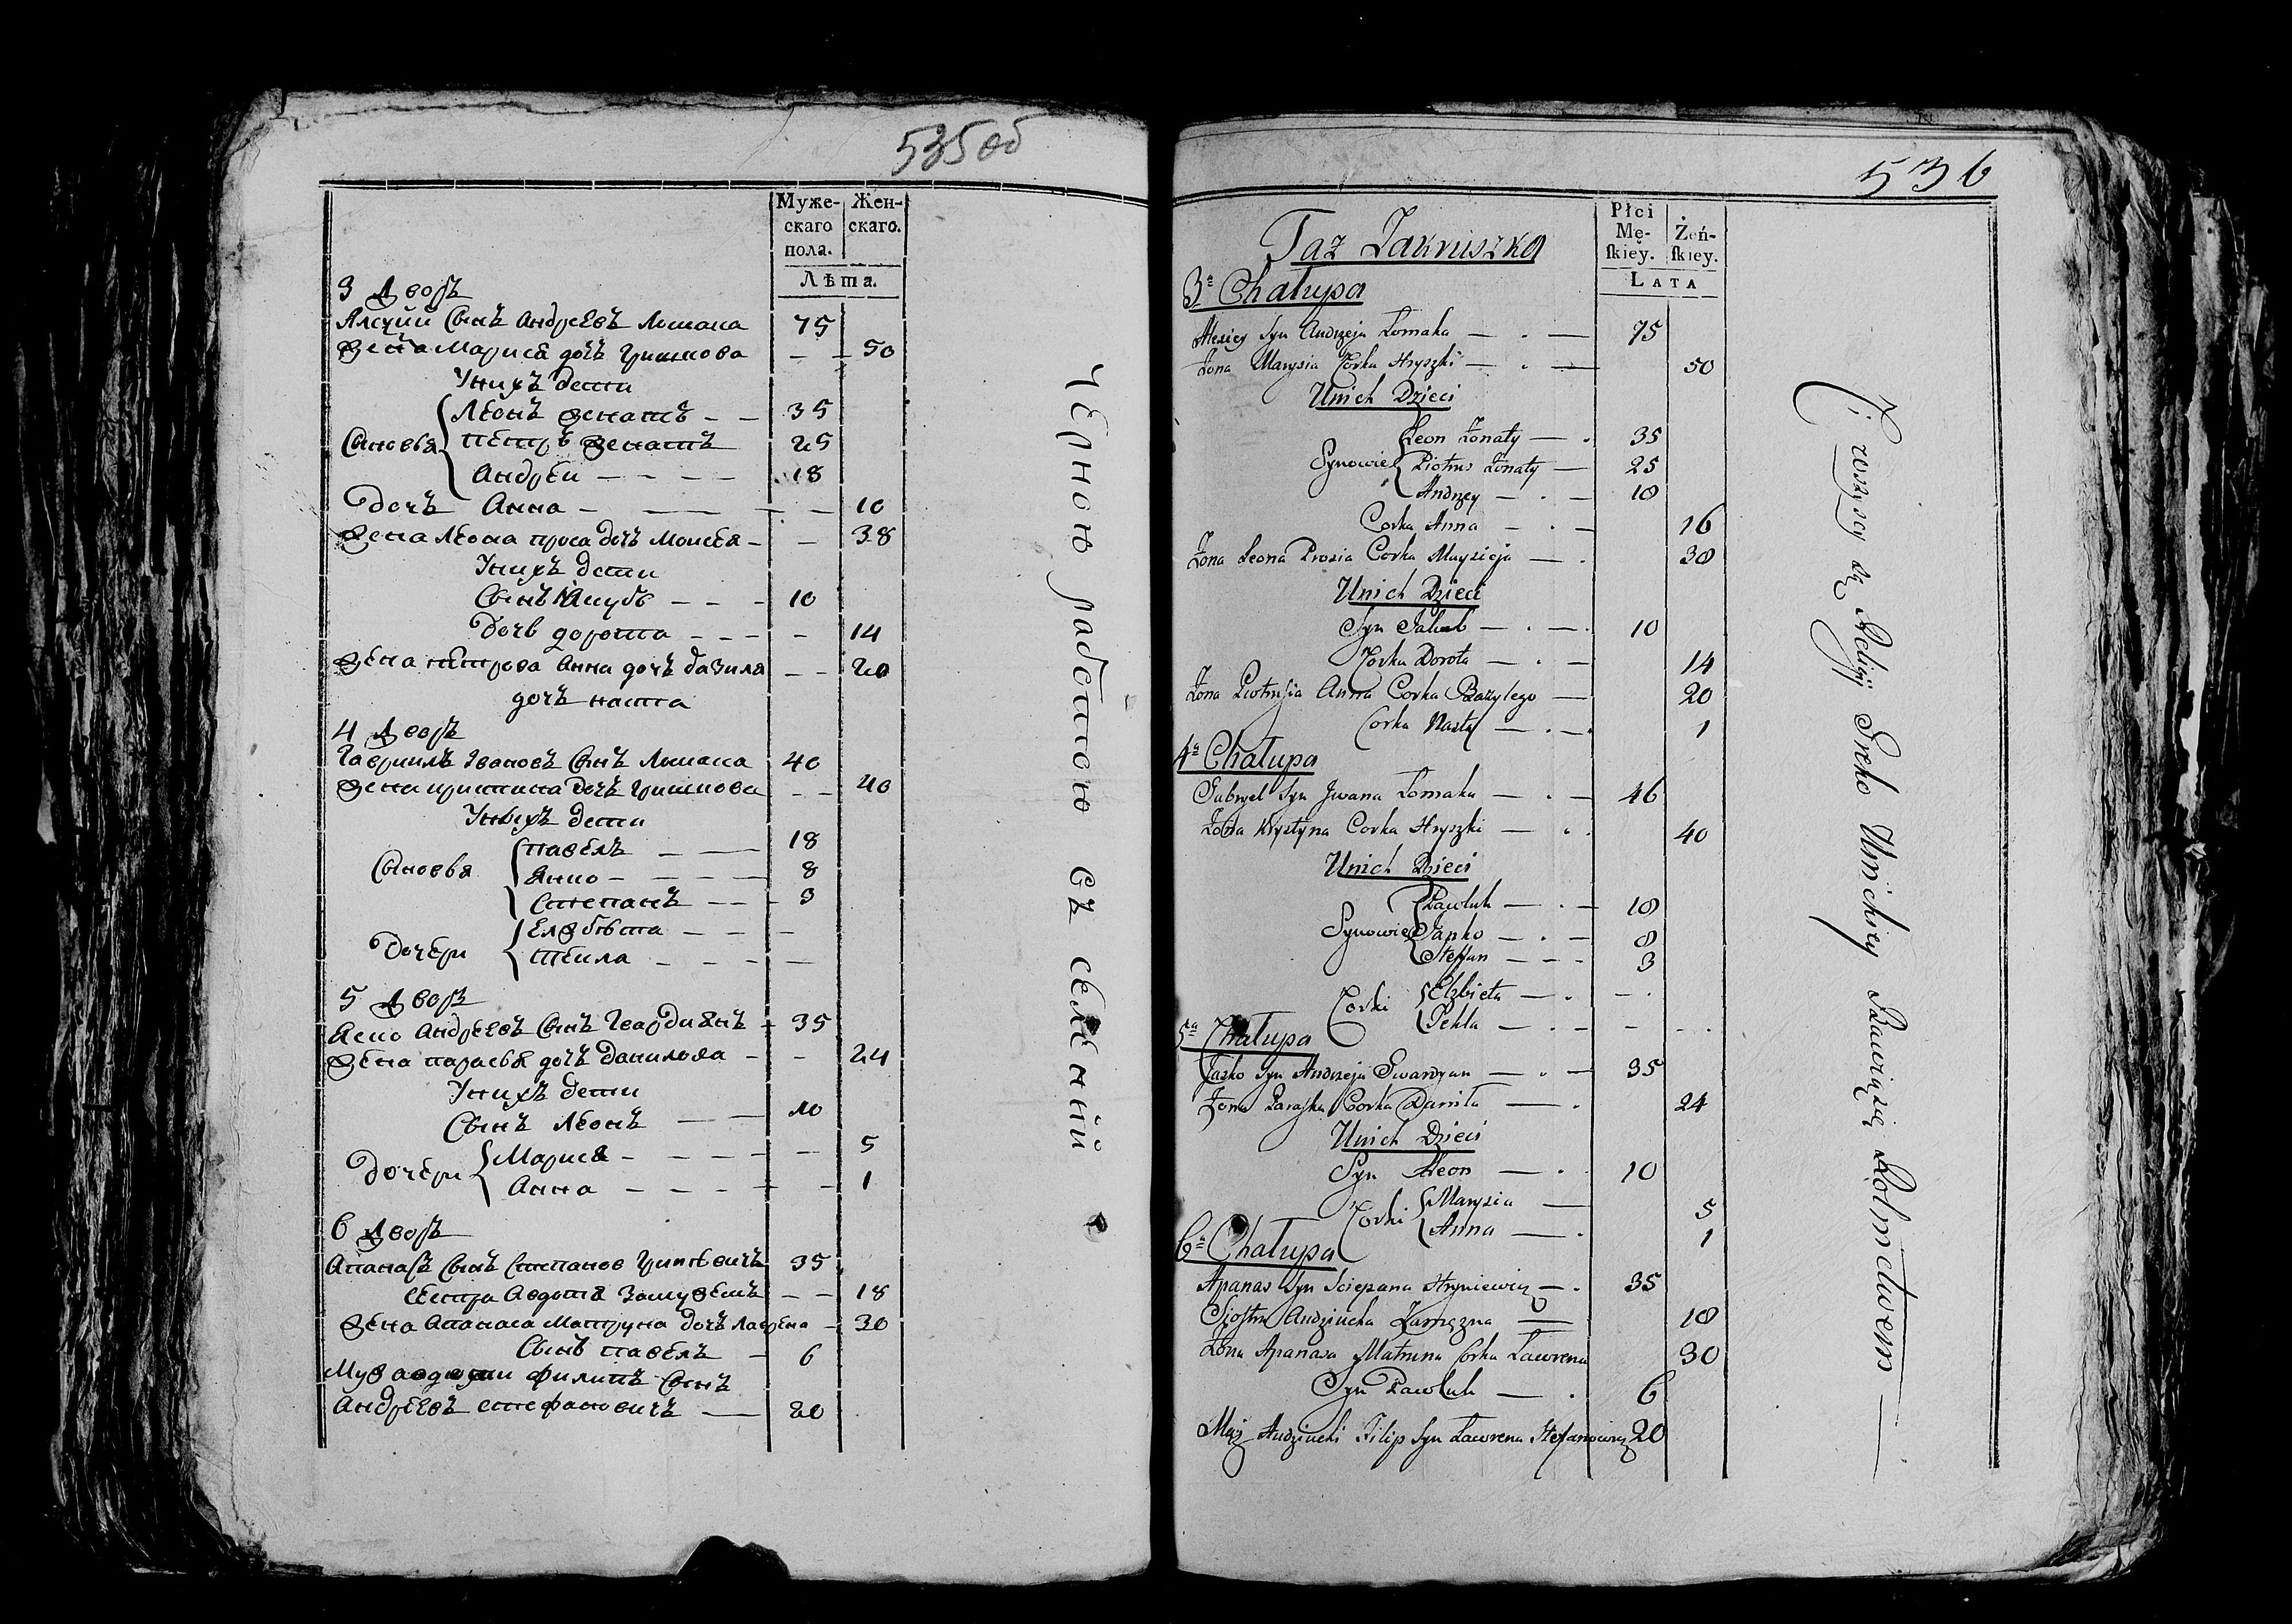 535 об
Муже-
скаго
пола.
Жен-
скаго.
Лѣта.
3 Дворъ
Алсуий Сынъ Андреевъ Ломака 75
Жена Марися дочь Гришкова 50
У нихъ дети
Сыновья
Леонъ женатъ 35
Петръ женатъ 25
Андрей 18
Дочь Анна 10
Жена Леона Проса дочь Моисея 38
У нихъ дети
Сынъ Якубъ 10
Дочь Дорота 14
Жена Петрова Анна дочь Базиля 20
дочь Наста
4 Дворъ
Гавриилъ Ивановъ Сынъ Ломака 40
Жена Христина дочь Гришкова 40
У нихъ дети
Сыновья
Павелъ 18
Янко 8
Степанъ 3
Дочери
Елжбѣта
Текла
5 Дворъ
Ясько Андреевъ Сынъ Гвардиянъ 35
Жена Парасья дочь Данилова 24
У нихъ дети
Сынъ Леонъ 10
Дочери
Марися 5
Анна 1
6 Дворъ
Апанасъ Сынъ Степанов Гриневичъ 35
сестра Авдотя Замужемъ 18
Жена Апанаса Матруна дочь Лаврена 30
Сынъ Павелъ 6
Муж Авдоти Филипъ Сынъ
Андреевъ Стефановичъ 20
Черною работою
съ селений
536
Taż Zakruszka
Płci
Mę-
skiey.
Żeń-
skiey.
LATA
3a Chałupa
Alexiey Syn Andrzeja Łomaka 75
Żona Marysia Corka Hryszki 50
U nich Dzieci
Synowie
Leon Żonaty 35
Piotruś Żonaty 25
Andrzey 18
Corka Anna 16
Żona Leona Prosia Corka Mayzieja 38
U nich Dzieci
Syn Jakub 10
Corka Dorota 14
Żona Piotrusia Anna Corka Bazylego 20
Corka Nasta 1
4a Chałupa
Gabryel Syn Jwana Łomaka 46
Żona Krystyna Corka Hryszki 40
U nich Dzieci
Synowie
Pawluk 18
Janko 8
Steffan 3
Corki
Elzbieta
Tekla
5a Chałupa
Jaśko Syn Andrzeja Gwardyan 35
Żona Paraska Corka Daniła 24
U nich Dzieci
Syn Leon 10
Corki
Marysia 5
Anna 1
6a Chałupa
Apanas Syn Sciepana Hryniewicz 35
Siostra Audziucha Zamężna 18
Żona Apanasa Matruna Corka Ławrena 30
Syn Pawluk 6
Mąż Audziuchi Filip Syn Ławrena Stefanowicz 20
Ci wszyscy są Religij Greko Unickiey Bawią się Rolnictwem